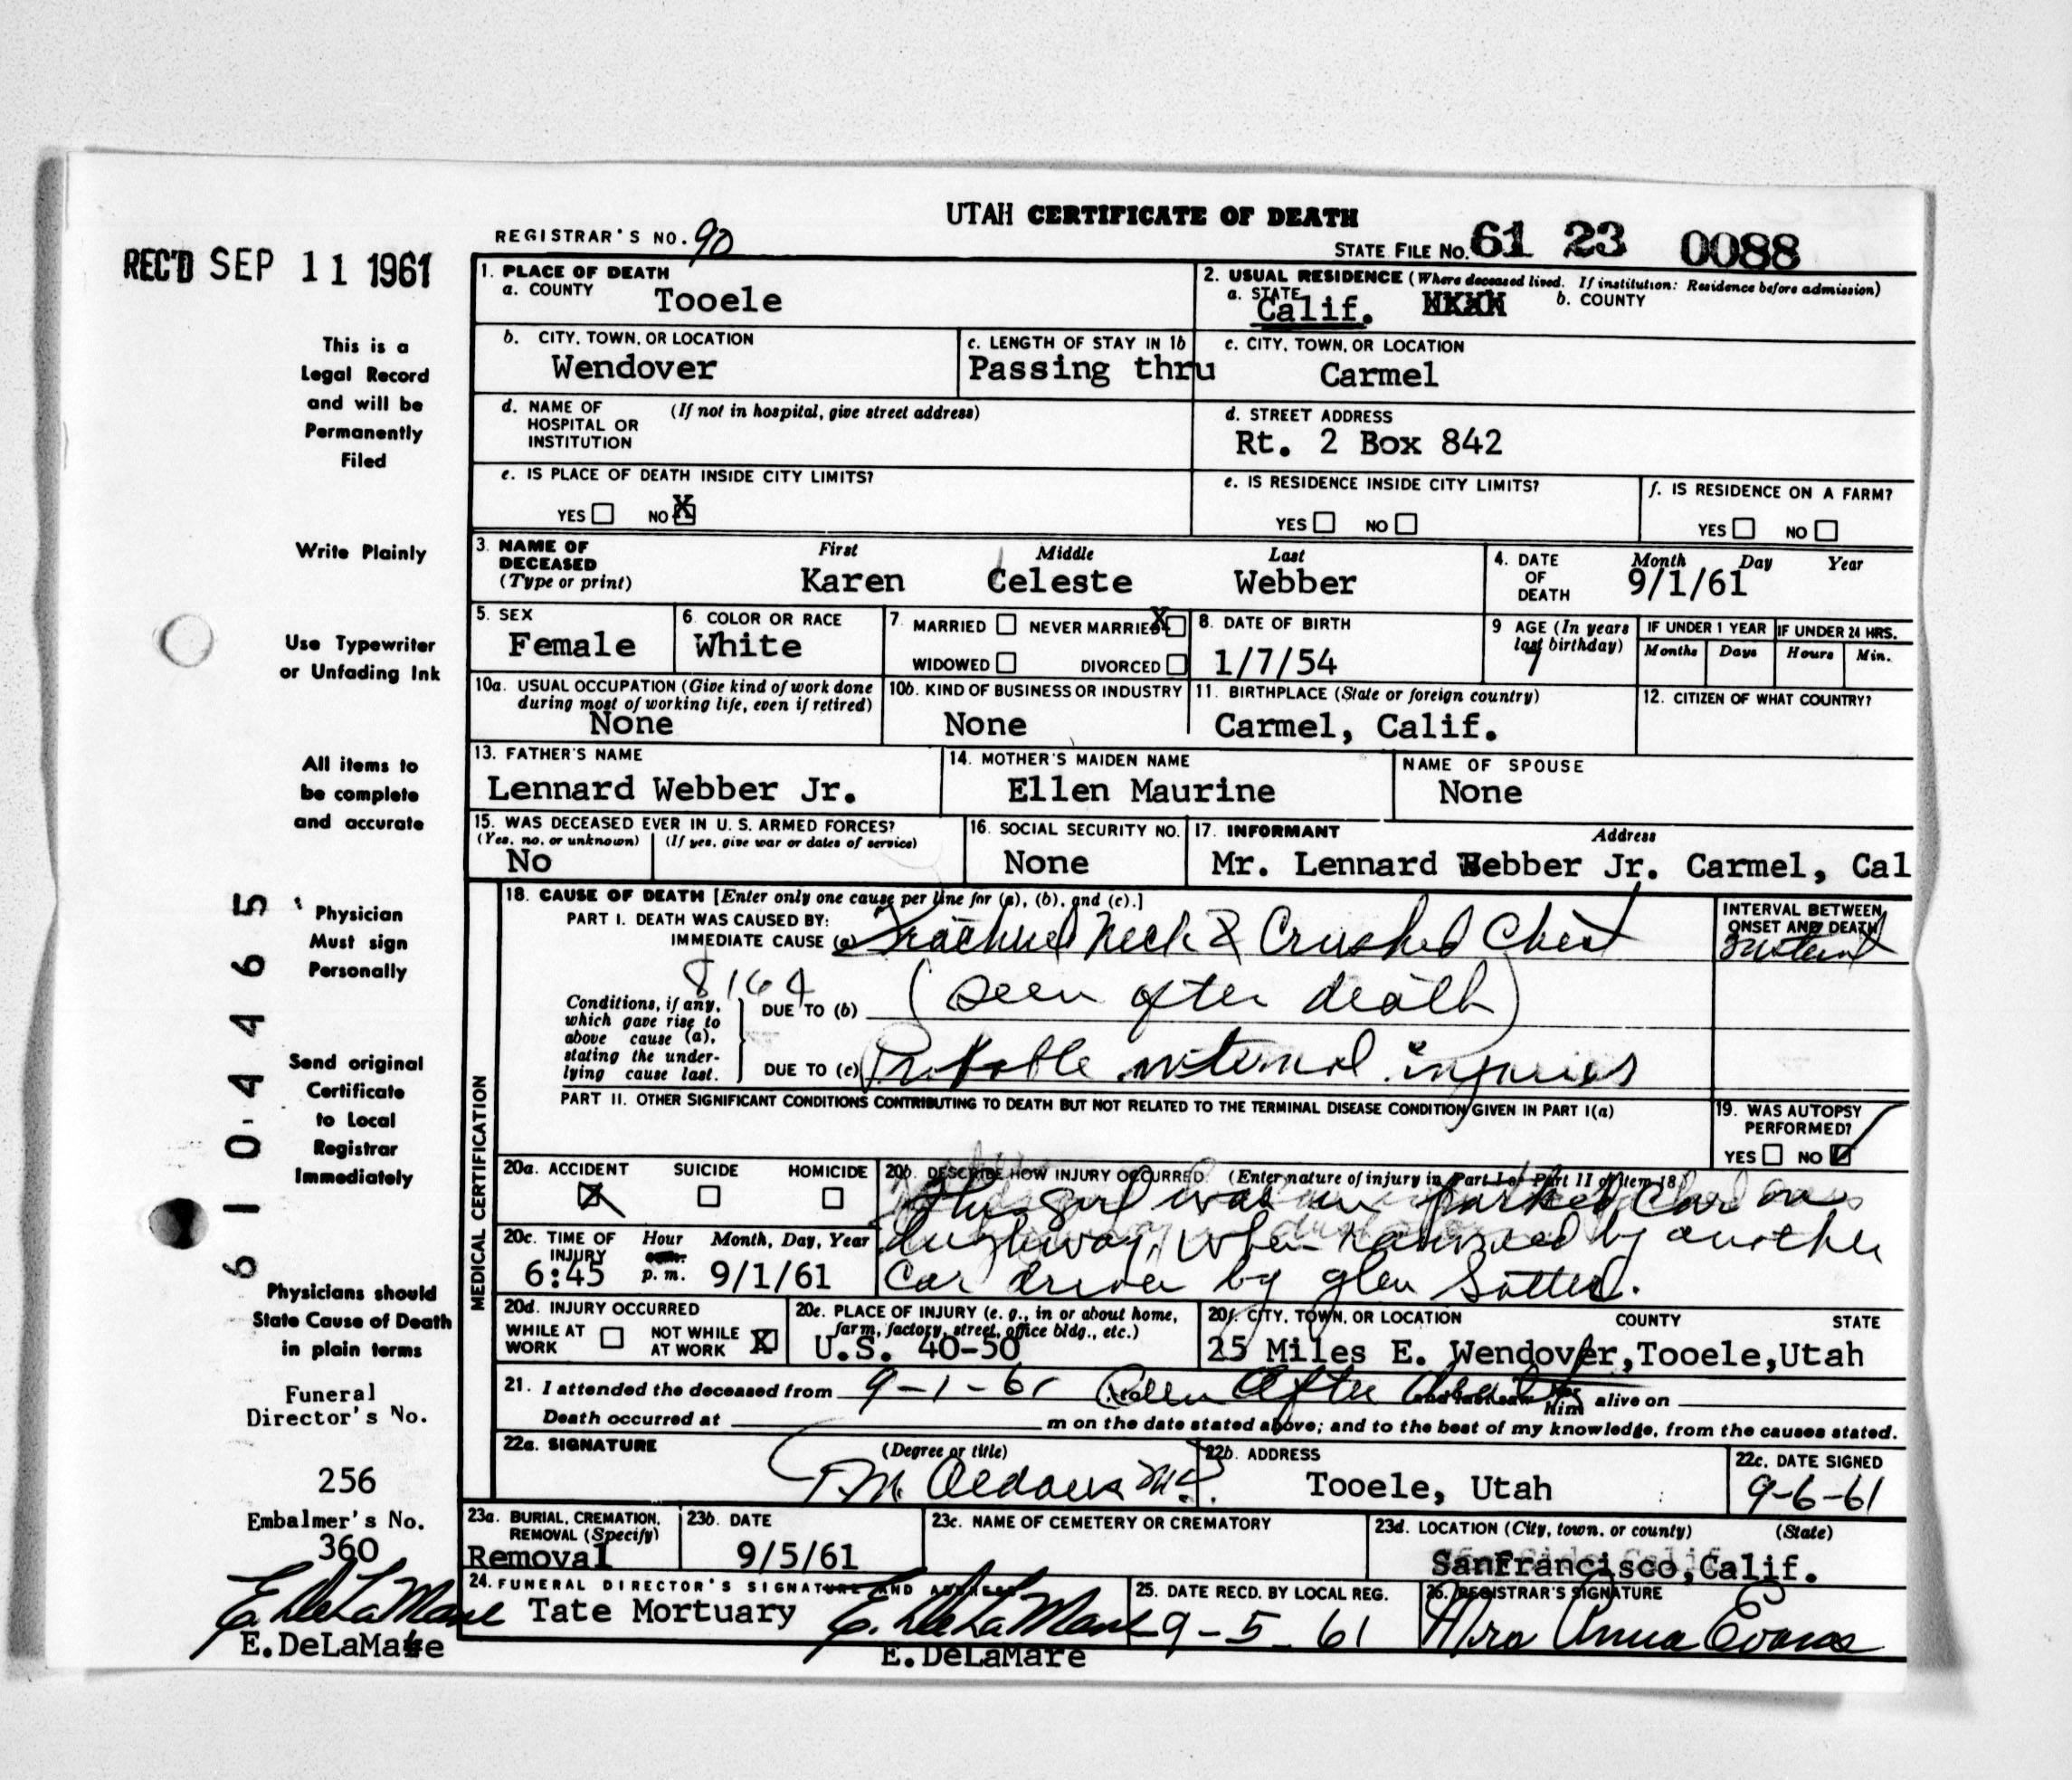 UTAH CERTIFICATE OF DEATH
REGISTRAR'S NO. 90
STATE FILE NO. 61 23 0088
REC'D SEP 11 1961
This is a
Legal Record
and will be
Permanently
Filed
Write Plainly
Use Typewriter
or Unfading Ink
All items to
be complete
and accurate
Physician
Must sign
Personally
Send original
Certificate
to Local
Registrar
Immediately
Physicians should
State Cause of Death
in plain terms
Funeral
Director's No.
256
Embalmer's No.
360
E. DeLaMare
E.DeLaMare
61 0-4465
1. PLACE OF DEATH
a. COUNTY Tooele
2. USUAL RESIDENCE (Where deceased lived. If institution: Residence before admission)
a. STATE Calif. b. COUNTY
b. CITY, TOWN, OR LOCATION Wendover
c. LENGTH OF STAY IN 1b Passing thru
c. CITY, TOWN, OR LOCATION Carmel
d. NAME OF HOSPITAL OR INSTITUTION (If not in hospital, give street address)
d. STREET ADDRESS Rt. 2 Box 842
e. IS PLACE OF DEATH INSIDE CITY LIMITS?
YES NO X
e. IS RESIDENCE INSIDE CITY LIMITS?
YES NO
f. IS RESIDENCE ON A FARM?
YES NO
3. NAME OF DECEASED (Type or print) First Middle Last
Karen Celeste Webber
4. DATE OF DEATH Month Day Year
9/1/61
5. SEX Female
6. COLOR OR RACE White
7 MARRIED NEVER MARRIED X
WIDOWED DIVORCED
8. DATE OF BIRTH 1/7/54
9 AGE (In years last birthday) 7
IF UNDER 1 YEAR Months Days
IF UNDER 24 HRS. Hours Min.
10a. USUAL OCCUPATION (Give kind of work done during most of working life, even if retired) None
10b. KIND OF BUSINESS OR INDUSTRY None
11. BIRTHPLACE (State or foreign country) Carmel, Calif.
12. CITIZEN OF WHAT COUNTRY?
13. FATHER'S NAME Lennard Webber Jr.
14. MOTHER'S MAIDEN NAME Ellen Maurine
NAME OF SPOUSE None
15. WAS DECEASED EVER IN U. S. ARMED FORCES?
(Yes, no, or unknown) (If yes, give war or dates of service)
No
16. SOCIAL SECURITY NO. None
17. INFORMANT Address
Mr. Lennard Webber Jr. Carmel, Cal
MEDICAL CERTIFICATION
18. CAUSE OF DEATH [Enter only one cause per line for (a), (b), and (c).]
PART I. DEATH WAS CAUSED BY:
IMMEDIATE CAUSE (a) Fractured Neck & Crushed Chest
INTERVAL BETWEEN ONSET AND DEATH Instant
Conditions, if any, which gave rise to above cause (a), stating the underlying cause last.
DUE TO (b) (Seen after death)
DUE TO (c) Probable internal injuries
PART II. OTHER SIGNIFICANT CONDITIONS CONTRIBUTING TO DEATH BUT NOT RELATED TO THE TERMINAL DISEASE CONDITION GIVEN IN PART I(a)
19. WAS AUTOPSY PERFORMED?
YES NO
20a. ACCIDENT SUICIDE HOMICIDE
20b. DESCRIBE HOW INJURY OCCURRED. (Enter nature of injury in Part I or Part II of item 18.)
This girl was in parked car on
highway, when rammed by another
car driven by Glen
20c. TIME OF INJURY Hour Month, Day, Year
6:45 p. m. 9/1/61
20d. INJURY OCCURRED
WHILE AT WORK NOT WHILE AT WORK X
20e. PLACE OF INJURY (e. g., in or about home, farm, factory, street, office bldg., etc.)
U.S. 40-50
20f. CITY, TOWN, OR LOCATION COUNTY STATE
25 Miles E. Wendover,Tooele,Utah
21. I attended the deceased from 9-1-61 (Seen After death) him alive on
Death occurred at m on the date stated above; and to the best of my knowledge, from the causes stated.
22a. SIGNATURE (Degree or title)
22b. ADDRESS Tooele, Utah
22c. DATE SIGNED 9-6-61
23a. BURIAL, CREMATION, REMOVAL (Specify) Removal
23b. DATE 9/5/61
23c. NAME OF CEMETERY OR CREMATORY
23d. LOCATION (City, town, or county) (State)
SanFrancisco,Calif.
24. FUNERAL DIRECTOR'S SIGNATURE AND ADDRESS
Tate Mortuary E. DeLaMare
E.DeLaMare
25. DATE RECD. BY LOCAL REG. 9-5-61
26. REGISTRAR'S SIGNATURE
Mrs Anna Evans